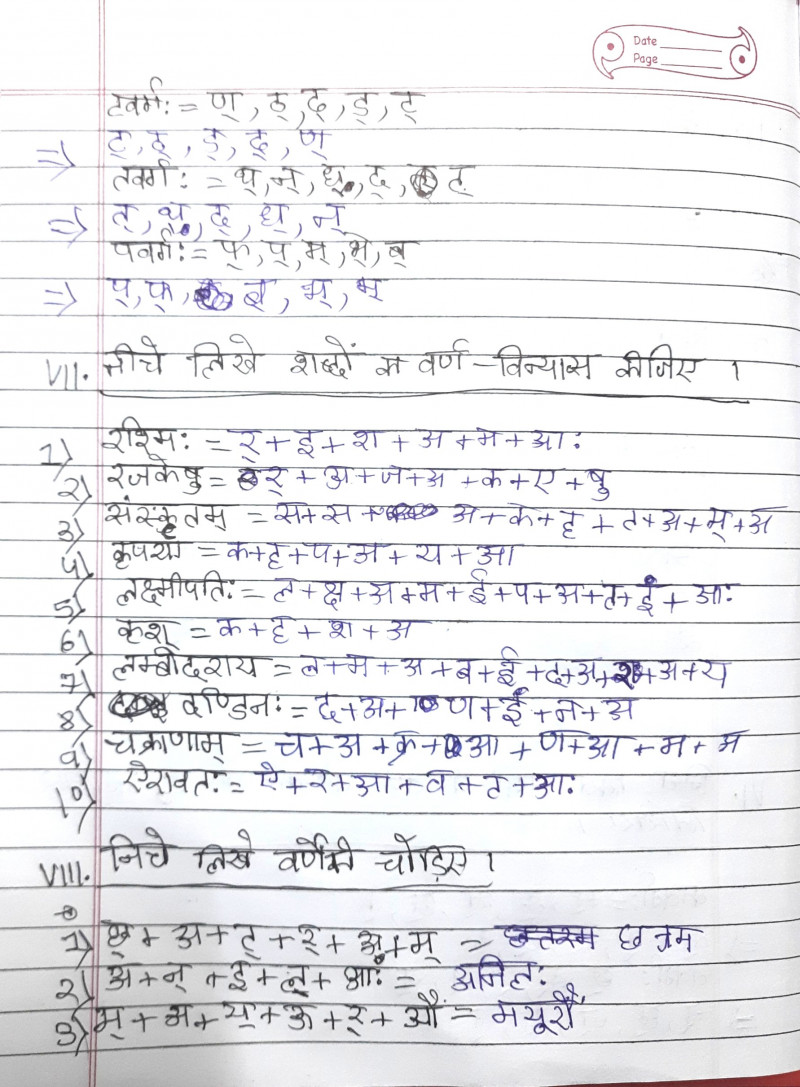 Date
Page
टवर्ग: = ण्, ठ्, ढ्, ड्, ट्
⇒ ट्, ठ्, ड्, ढ्, ण्
तवर्ग: = थ्, न्, ध्, द्, त्
⇒ त्, थ्, द्, ध्, न्
पवर्ग: = फ्, प्, म्, भ्, ब्
⇒ प्, फ्, ब्, भ्, म्
VII. नीचे लिखे शब्दों क वर्ण-विन्यास कीजिए।
1) रश्मि: = र् + इ + श + अ + म + आ:
2) रजकेषु = र् + अ + ज + अ + क + ए + षु
3) संस्कृतम् = स + स + अ + क + ह + त + अ + म् + अ
4) कृपया = क + ह + प + अ + य + आ
5) लक्ष्मीपति: = ल + क्ष + अ + म + ई + प + अ + त + ई + आ:
6) कृश् = क + ह + श + अ
7) लम्बोदराय = ल + म + अ + ब + ई + द + अ + र + अ + य
8) दण्डिन: = द + अ + ण + ई + न + अ
9) चक्राणाम् = च + अ + क्र + आ + ण + आ + म + म
10) ऐरावत: = ऐ + र + आ + व + त + आ:
VIII. निचे लिखे वर्णेमे चोड़िए।
1) छ् + अ + त् + र् + अ + म् = छत्रम
2) अ + न् + इ + ल् + आ: = अनिल:
3) म् + अ + य् + ऊ + र् + औ = मयूरौ